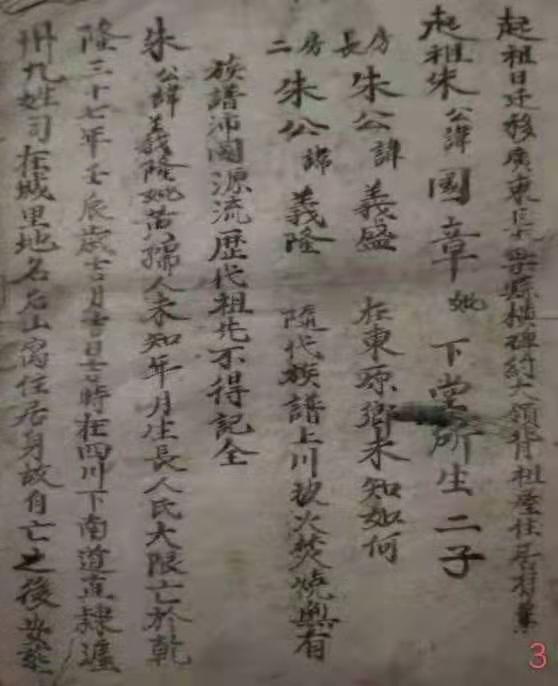 起祖日迁移廣東長樂縣橫碑約大嶺背祖屋住居村業
起祖朱公諱國章妣 下堂所生二子
長房朱公諱義盛 在東原鄉未知如何
二房朱公諱義隆 隨代族譜上川被火焚燒無有
族譜沛國源流歷代祖先不得記全
朱公諱義隆妣黃孺人未知年月生長人民大限亡於乾
隆三十七年壬辰歲 月 日 時在四川下南道直隸瀘
州九姓司在城里地名石山窩住居身故自亡之後安葬
3